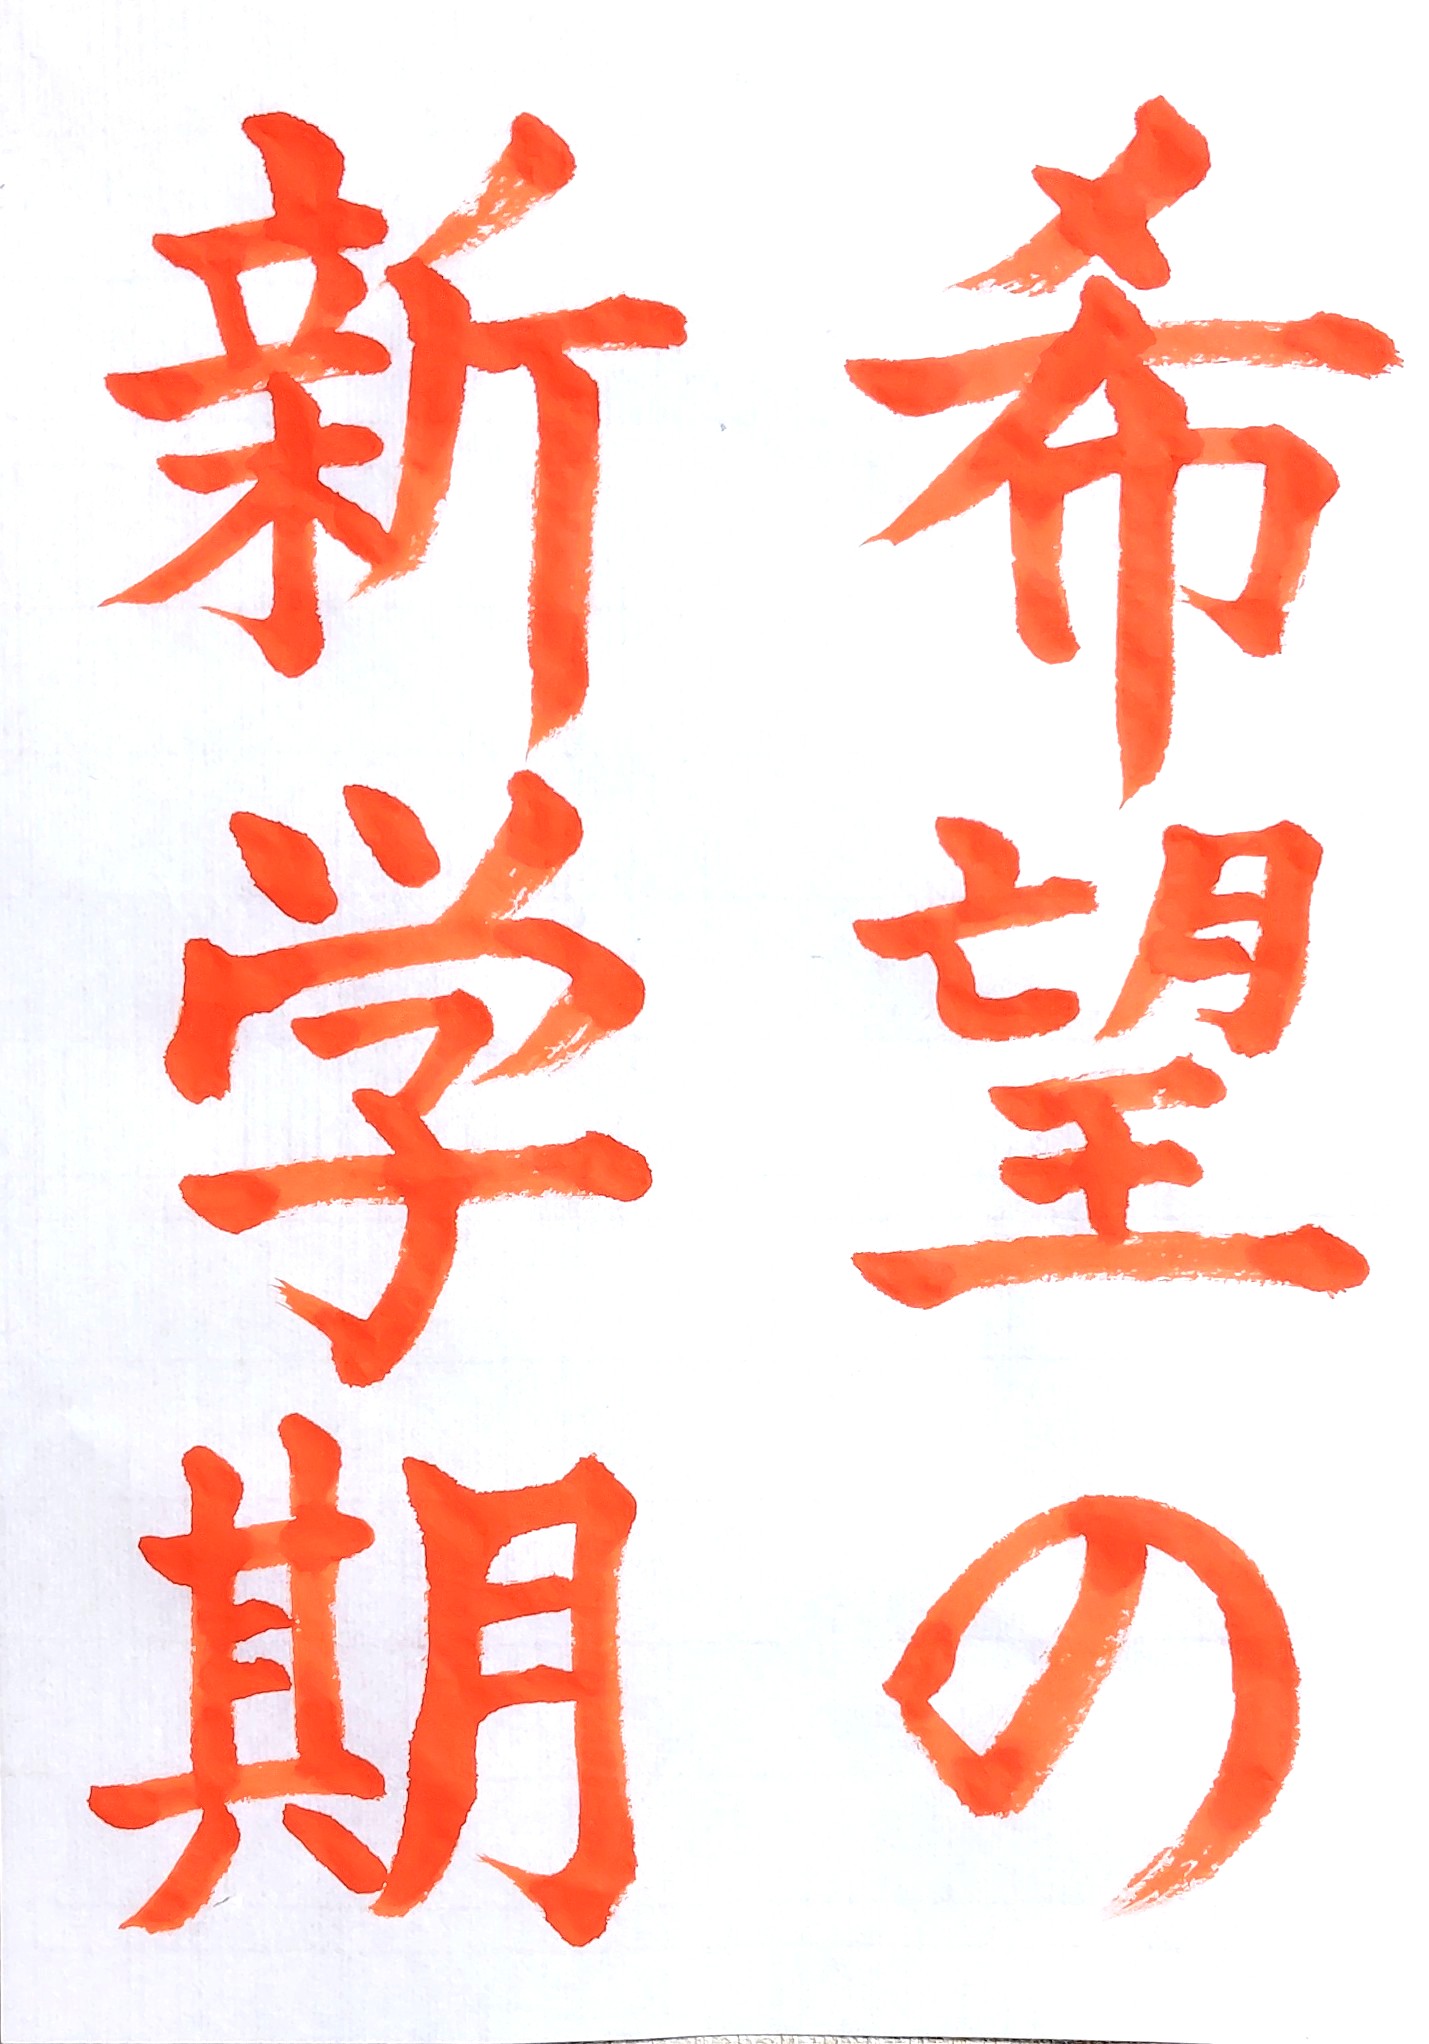 希望の
新学期